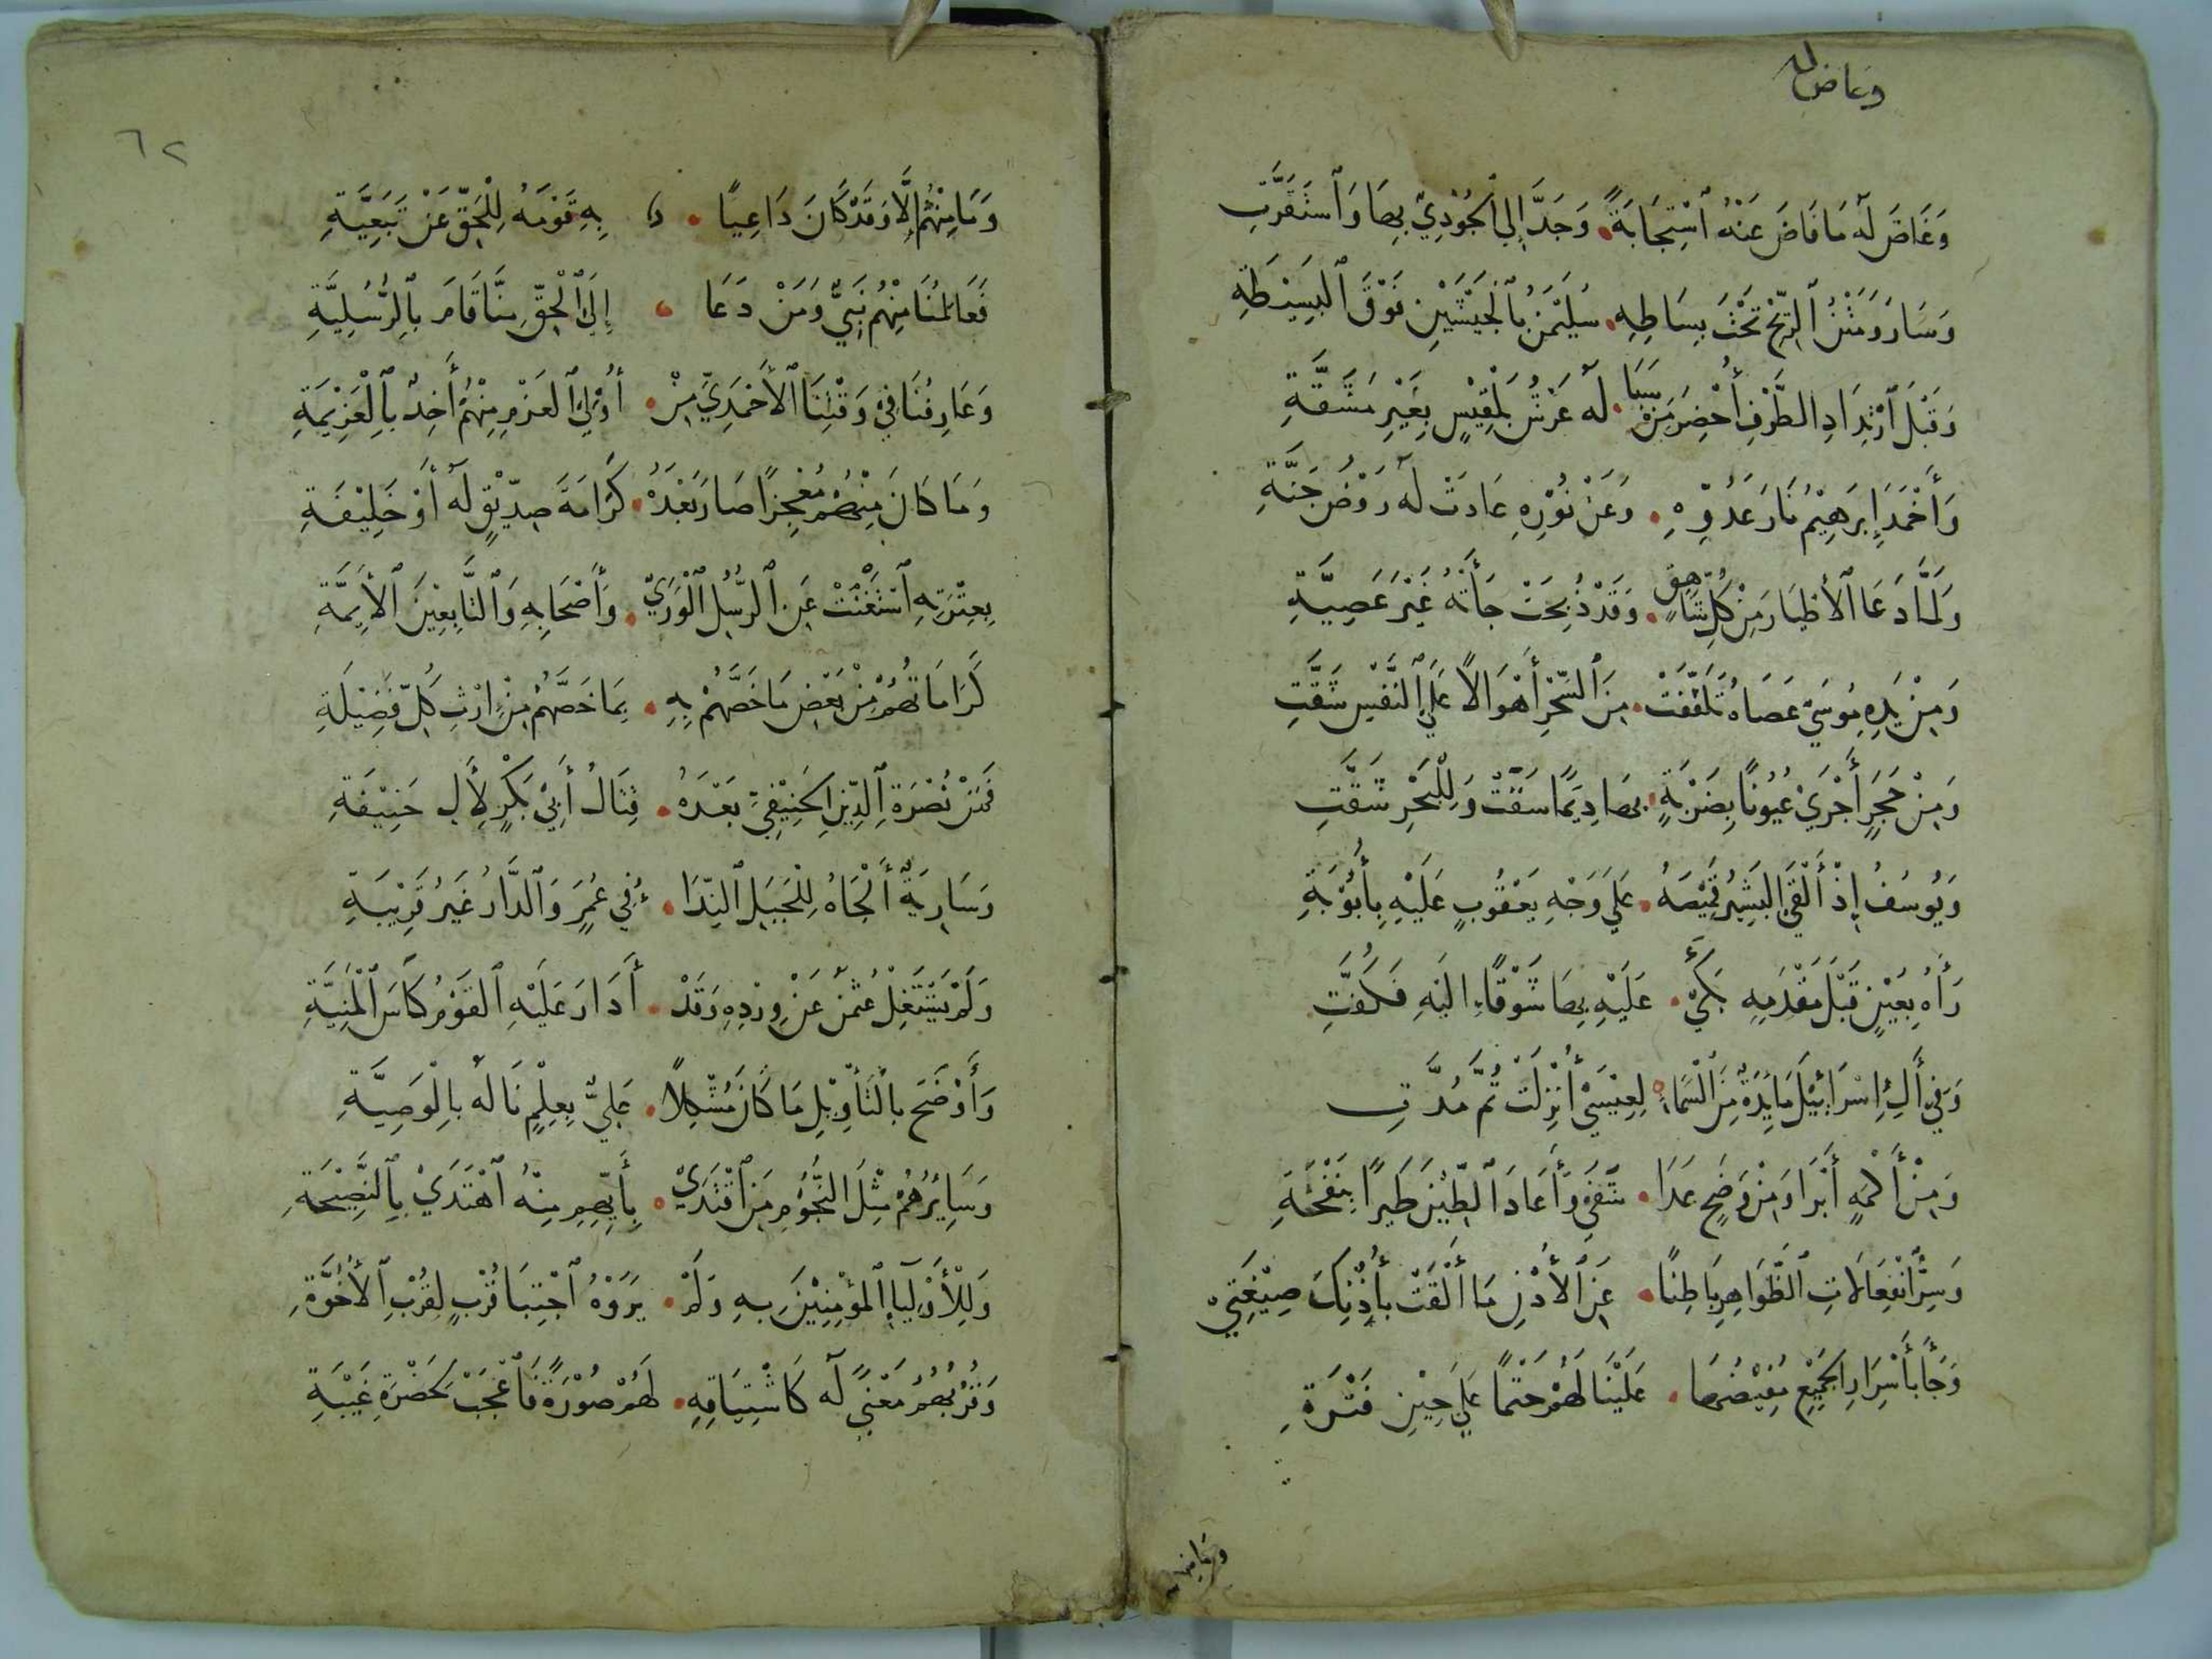 وغاض له
وَغَاضَ لَهُ مَا فَاضَ عَنْهُ ٱسْتِجَابَةً وَجَدَّ إِلَى ٱلْجُوْدِيِّ بِهَا وَٱسْتَقَرَّتِ
وَسَارَ وَمَتْنُ ٱلرِّيْحِ تَحْتَ بِسَاطِهِ سُلَيْمَنُ بِٱلْجَيْشَيْنِ فَوْقَ ٱلبَسِيْطَةِ
وَقَبْلَ ٱرْتِدَادِ الطَّرْفِ أُحْضِرَ مِنْ سَبَا لَهُ عَرْشُ بَلْقِيْسٍ بِغَيْرِ مَشَقَّةِ
وَأَخْمَدَ إِبرَهِيْمُ نَارَ عَدُوِّهِ وَعَنْ نُوْرِهِ عَادَتْ لَهُ رَوْضُ جَنَّةِ
وَلَمَّا دَعَا ٱلأَطْيَارَ مِنْ كُلِّ شَاهِقٍ وَقَدْ ذُبِحَتْ جَأَتْهُ غَيْرَ عَصِيَّةِ
وَمِنْ يَدِهِ مُوسَيْ عَصَاهُ تَلَقَّفَتْ مِنَ ٱلسِّحْرِ أَهْوَالاً عَلَي ٱلنَّفْسِ شَقَّتِ
وَمِنْ حَجَرٍ أَجْرَيْ عُيُونًا بِضَرْبَةٍ بِهَا دِيَمًا سَقَّتْ وَلِلْبَحْرِ شَقَّتِ
وَيُوسُفُ إِذْ أَلْقَي البَشِيْرُ قَمِيْصَهُ عَلَي وَجْهِ يَعْقُوبٍ عَلَيْهِ بِأُوْبَةِ
رَأَهُ بِعَيْنٍ قَبْلَ مَقْدَمِهِ بَكَيْ عَلَيْهِ بِهَا شَوْقًا إِلَيْهِ فَكُفَّتِ
وَفِي أَلِ إِسْرَائِيْلَ مَايِدَةٌ مِنَ ٱلْسَّمَاءِ لِعِيْسَيْ أُنْزِلَتْ ثُمَّ مُدَّتِ
وَمِنْ أَكْمَهٍ أَبْرَا وَمِنْ وَضَحٍ عَدَا شَفَيْ وَأَعَادَ ٱلطِّيْنَ طَيْرًا بِنَفْخَةِ
وَسِرُّ ٱنْفِعَالَاتِ ٱلظَّوَاهِرِ بَاطِنًا عَنِ ٱلأُذْنِ مَا أَلْقَتْ بِأُذْنِكَ صِيْغَتِيْ
وَجَأَ بِأَسْرَارِ ٱلجَمِيْعِ مُفِيْضُهَا عَلَيْنَا لَهُمْ خَتْمًا عَلَي حِيْنِ فَتْرَةِ
وما منهم
٦٢
وَمَا مِنْهُمُ إِلَّا وَقَدْ كَانَ دَاعِيًا بِهِ قَوْمَهُ لِلْحَقِّ عَنْ تَبَعِيَّةِ
فَعَالِمُنَا مِنْهُمْ نَبِيٌّ وَمَنْ دَعَا إِلَى ٱلْحَقِّ مِنَّا قَامَ بِٱلرُّسُلِيَّةِ
وَعَارِفُنَا فِيْ وَقْتِنَا ٱلأَحْمَدِيِّ مِنْ أُوْلِي ٱلعَزْمِ مِنْهُمْ أَخِذٌ بِٱلْعَزِيْمَةِ
وَمَا كَانَ مِنْهُمْ مُعْجِزًا صَارَ بَعْدَهُ كَرَامَةَ صِدِّيْقٍ لَهُ أَوْ خَلِيْفَةِ
بِعِتْرَتِهِ ٱسْتَغْنَتْ عَنِ ٱلرُّسُلِ ٱلْوَرَيْ وَأَصْحَابِهِ وَٱلتَّابِعِيْنَ ٱلأَيِمَّةِ
كَرَامَاتُهُمْ مِنْ بَعْضِ مَا خَصَّهُمْ بِهِ بِمَا خَصَّهُمْ مِنْ إِرْثِ كُلِّ فَضِيْلَةِ
فَمِنْ نُصْرَةِ ٱلدِّيْنِ ٱلحَنِيْفِيِّ بَعْدَهُ قِتَالُ أَبِيْ بَكْرٍ لِأَلِ حَنِيْفَةِ
وَسَارِيَةٌ أَلْجَاهُ لِلْجَبَلِ ٱلنِّدَا ءُ مِنْ عُمَرٍ وَٱلدَّارُ غَيْرُ قَرِيْبَةِ
وَلَمْ يَشْتَغِلْ عُثْمٰنُ عَنْ وِرْدِهِ وَقَدْ أَدَارَ عَلَيْهِ ٱلقَوْمُ كَأْسَ ٱلْمَنِيَّةِ
وَأَوْضَحَ بِالْتَأْوِيْلِ مَا كَانَ مُشْكِلاً عَلِيٌّ بِعِلْمٍ نَالَهُ بِالْوَصِيَّةِ
وَسَايِرُهُمْ مِثْلُ النُّجُوْمِ مَنِ ٱقْتَدَيْ بِأَيِّهِمِ مِنْهُ ٱهْتَدَيْ بِٱلنَّصِيْحَةِ
وَلِلْأَوْلِيَآءِ ٱلمُؤْمِنِيْنَ بِهِ وَلَمْ يَرَوْهُ ٱجْتِبَا قُرْبٍ لِقُرْبِ ٱلأُخُوَّةِ
وَقُرْبُهُمُ مَعْنَيً لَهُ كَٱشْتِيَاقِهِ لَهُمْ صُوْرَةً فَٱعْجَبْ لِحَضْرَةِ غَيْبَةِ